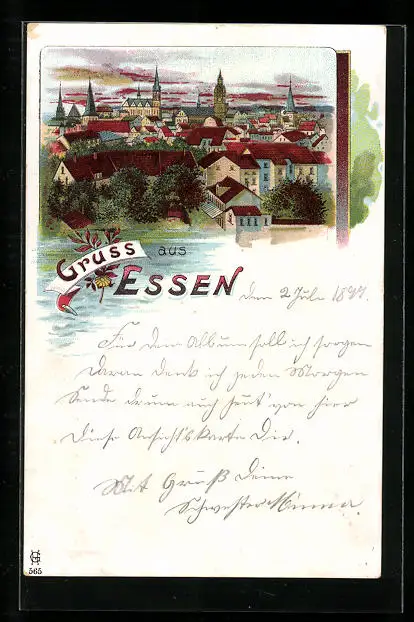 Gruss aus
ESSEN
den 2 Juli 1897.
Für dein Album soll ich sorgen
daran denk ich jeden Morgen
Sende drum auch heut' von hier
Diese Ansichtskarte Dir.
Mit Gruß deine
Schwester Minna.
565